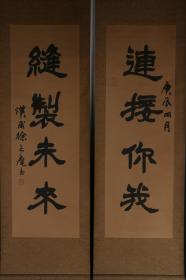 連接你我
庚辰四月
縫製未來
漢成徐之庵书